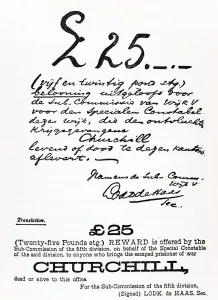 £ 25.-.-
(vijf en twintig pond stg.)
belooning uitgeloofd door
de Sub. Commissie van Wijk V
voor den specialen Constabel
dezer wijk, die den ontvluchte
Krijgsgevangene
Churchill
levend of dood te dezen kantore
aflevert.
Namens de Sub. Comm.
Wijk V
Lodk de Haas
Sec.
Translation.
£25
(Twenty-five Pounds stg.) REWARD is offered by the
Sub-Commission of the fifth division, on behalf of the Special Constable
of the said division, to anyone who brings the escaped prisoner of war
CHURCHILL,
dead or alive to this office.
For the Sub-Commission of the fifth division,
(Signed) LODK. de HAAS, Sec.